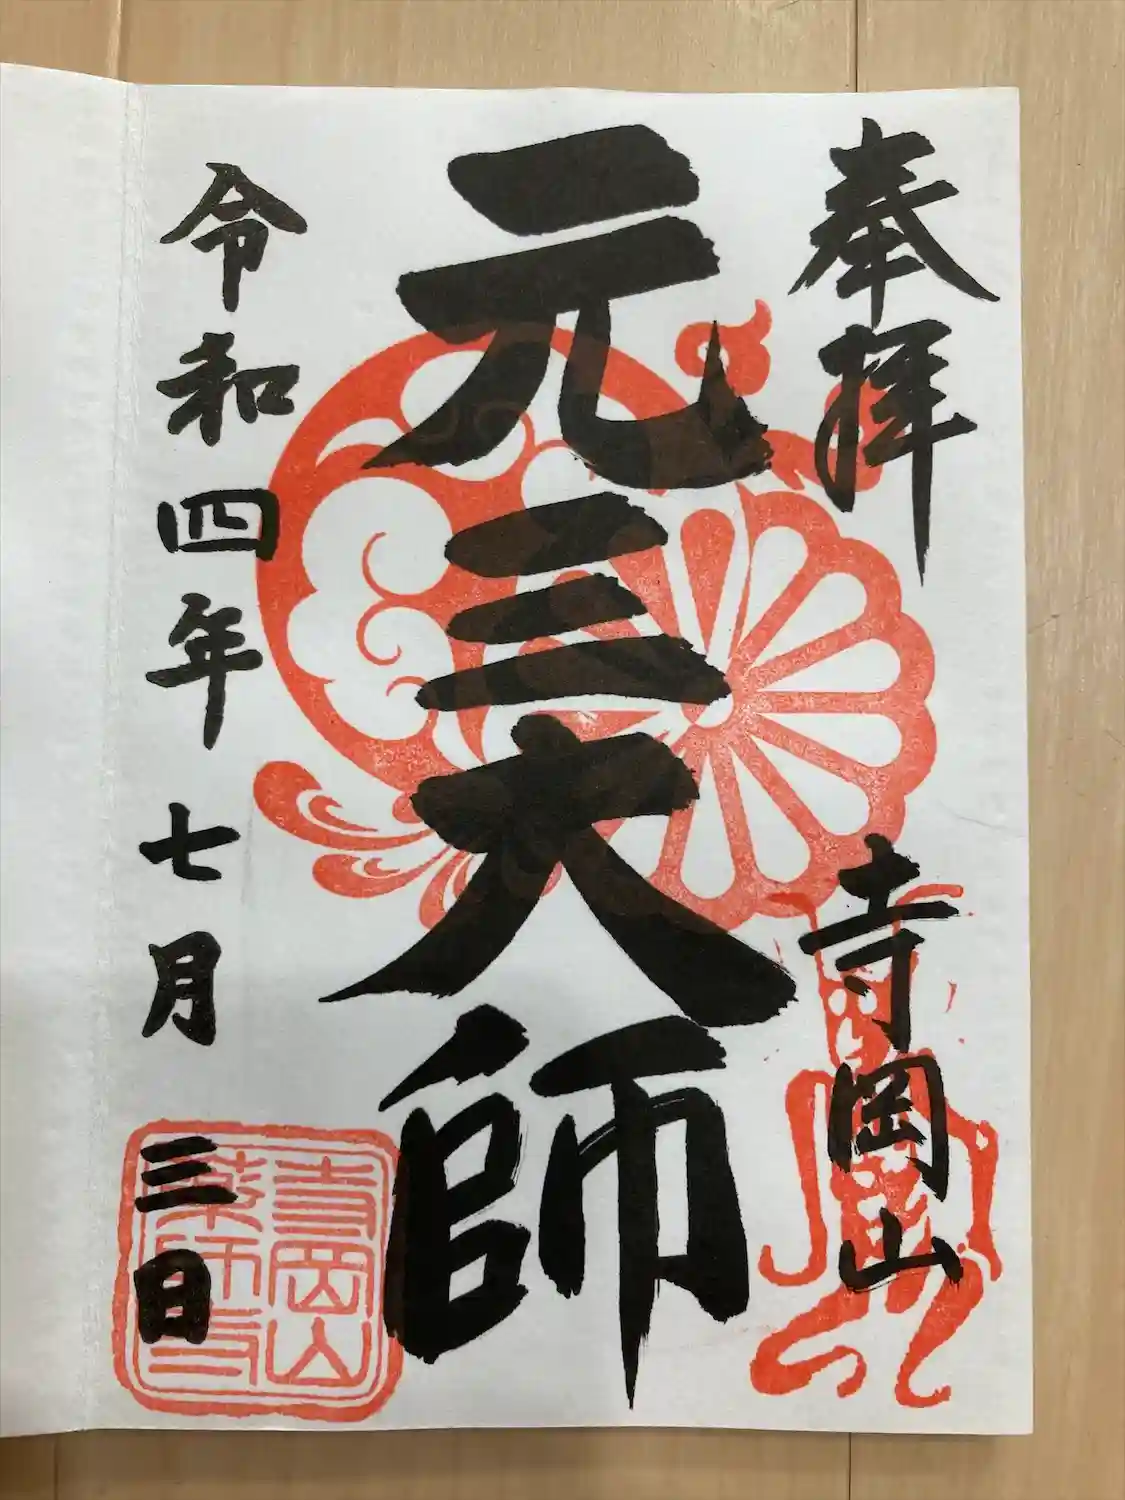 奉拝 寺岡山
元三大師
令和四年 七月 三日
寺岡山
薬師寺